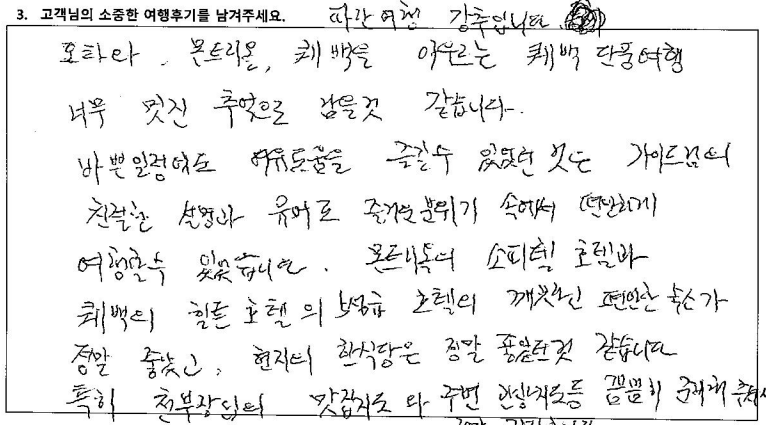 3. 고객님의 소중한 여행후기를 남겨주세요. 파란여행 강추입니다.
오타와, 몬트리올, 퀘백을 아우르는 퀘백 단풍여행
너무 멋진 추억으로 남을것 같습니다.
바쁜일정에도 여유로움을 즐길수 있었던 것은 가이드님의
친절한 설명과 유머로 즐거운분위기 속에서 편안하게
여행할수 있었습니다. 몬트리올의 소피텔 호텔과
퀘백의 힐튼 호텔의 5성급 호텔의 깨끗하고 편안한 숙소가
정말 좋았고, 현지의 한식당은 정말 좋았던것 같습니다
특히 천부장님의 맛집지도와 주변 안내지도등 꼼꼼히 준비해 주셔서